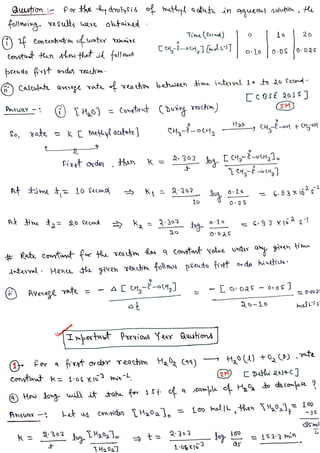 Question :- For the hydrolysis of methyl acetate in aqueous solution, the
following results were obtained.
Time (second) 0 10 20
[CH3-C-OCH3] (mol L-1) 0.10 0.05 0.025
O
(i) If concentration of water remains
constant then show that it follows
pseudo first order reaction.
(ii) Calculate average rate of reaction between time interval 10 to 20 second.
[CBSE 2015]
5M
Answer -: (i) [H2O] = Constant (During reaction)
So, rate = K [methyl acetate] CH3-C-OCH3 H2O → CH3-C-OH + CH3OH
First order, then K = 2.303/t log [CH3-C-OCH3]0 / [CH3-C-OCH3]
At time t1 = 10 second ⇒ K1 = 2.303/10 log 0.10/0.05 = 6.93 × 10-2 s-1
At time t2 = 20 second ⇒ K2 = 2.303/20 log 0.10/0.025 = 6.93 × 10-2 s-1
# Rate constant for the reaction has a constant value under any given time
interval. Hence the given reaction follows pseudo first order kinetics.
(ii) Average rate = - Δ[CH3-C-OCH3] / Δt = - [0.025 - 0.05] / 20-10
Important Previous Year Questions
① For a first order reaction H2O2 (aq) → H2O(l) + O2(g). rate
constant K = 1.06×10-3 min-1. 5M [Delhi 2014C]
ⓐ How long will it take for 15% of a sample of H2O2 to decompose ?
Answer -: Let us consider [H2O2]0 = 100 mol/L, then [H2O2]t = 100
-15
85 mol
K = 2.303/t log [H2O2]0/[H2O2] ⇒ t = 2.303/1.06×10-3 log 100/85 = 153.3 min